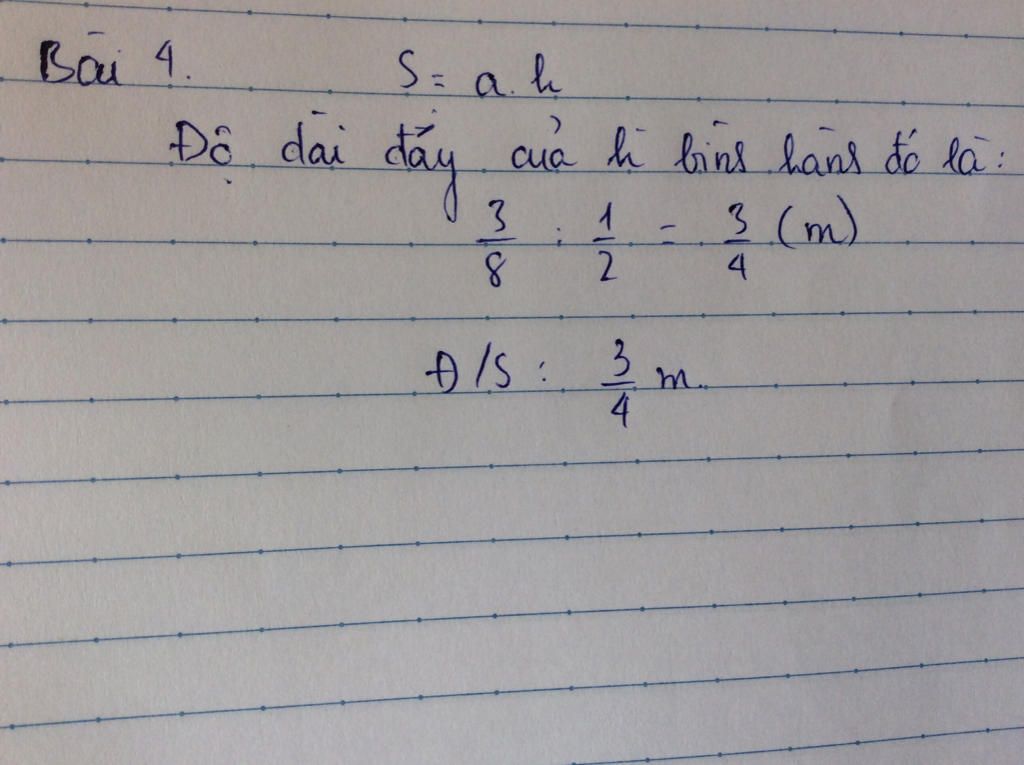 Bài 4. S = a.h
Độ dài đáy của h bình hành đó là:
3/8 : 1/2 = 3/4 (m)
Đ/S: 3/4 m.